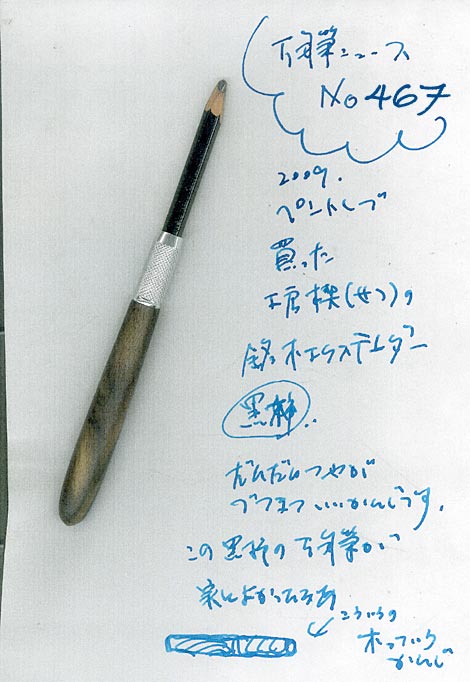 万年筆ニュース
No 467
2009.
ペントレで
買った
工房楔(せつ)の
銘木エクステンダー
黒柿..
だんだんつやが
でてきて いいかんじです.
この黒柿の万年筆が
こういうの
木っていう
かんじ